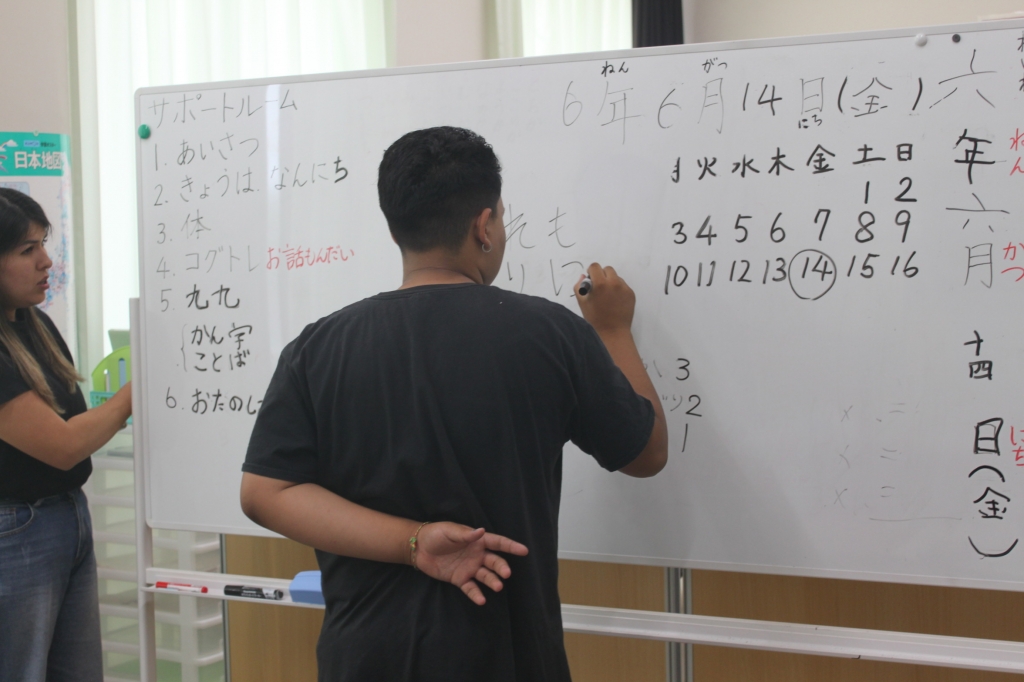 サポートルーム
1. あいさつ
2. きょうは、なんにち
3. 体
4. コグトレ お話もんだい
5. 九九
かん字
ことば
6. おたのし
日本地図
ねん がつ
6年6月14日(金)
にち
火 水 木 金 土 日
1 2
3 4 5 6 7 8 9
10 11 12 13 14 15 16
れも
りに
3
り2
1
x . =
=
x =
六年六月十四日(金)
ねん
がつ